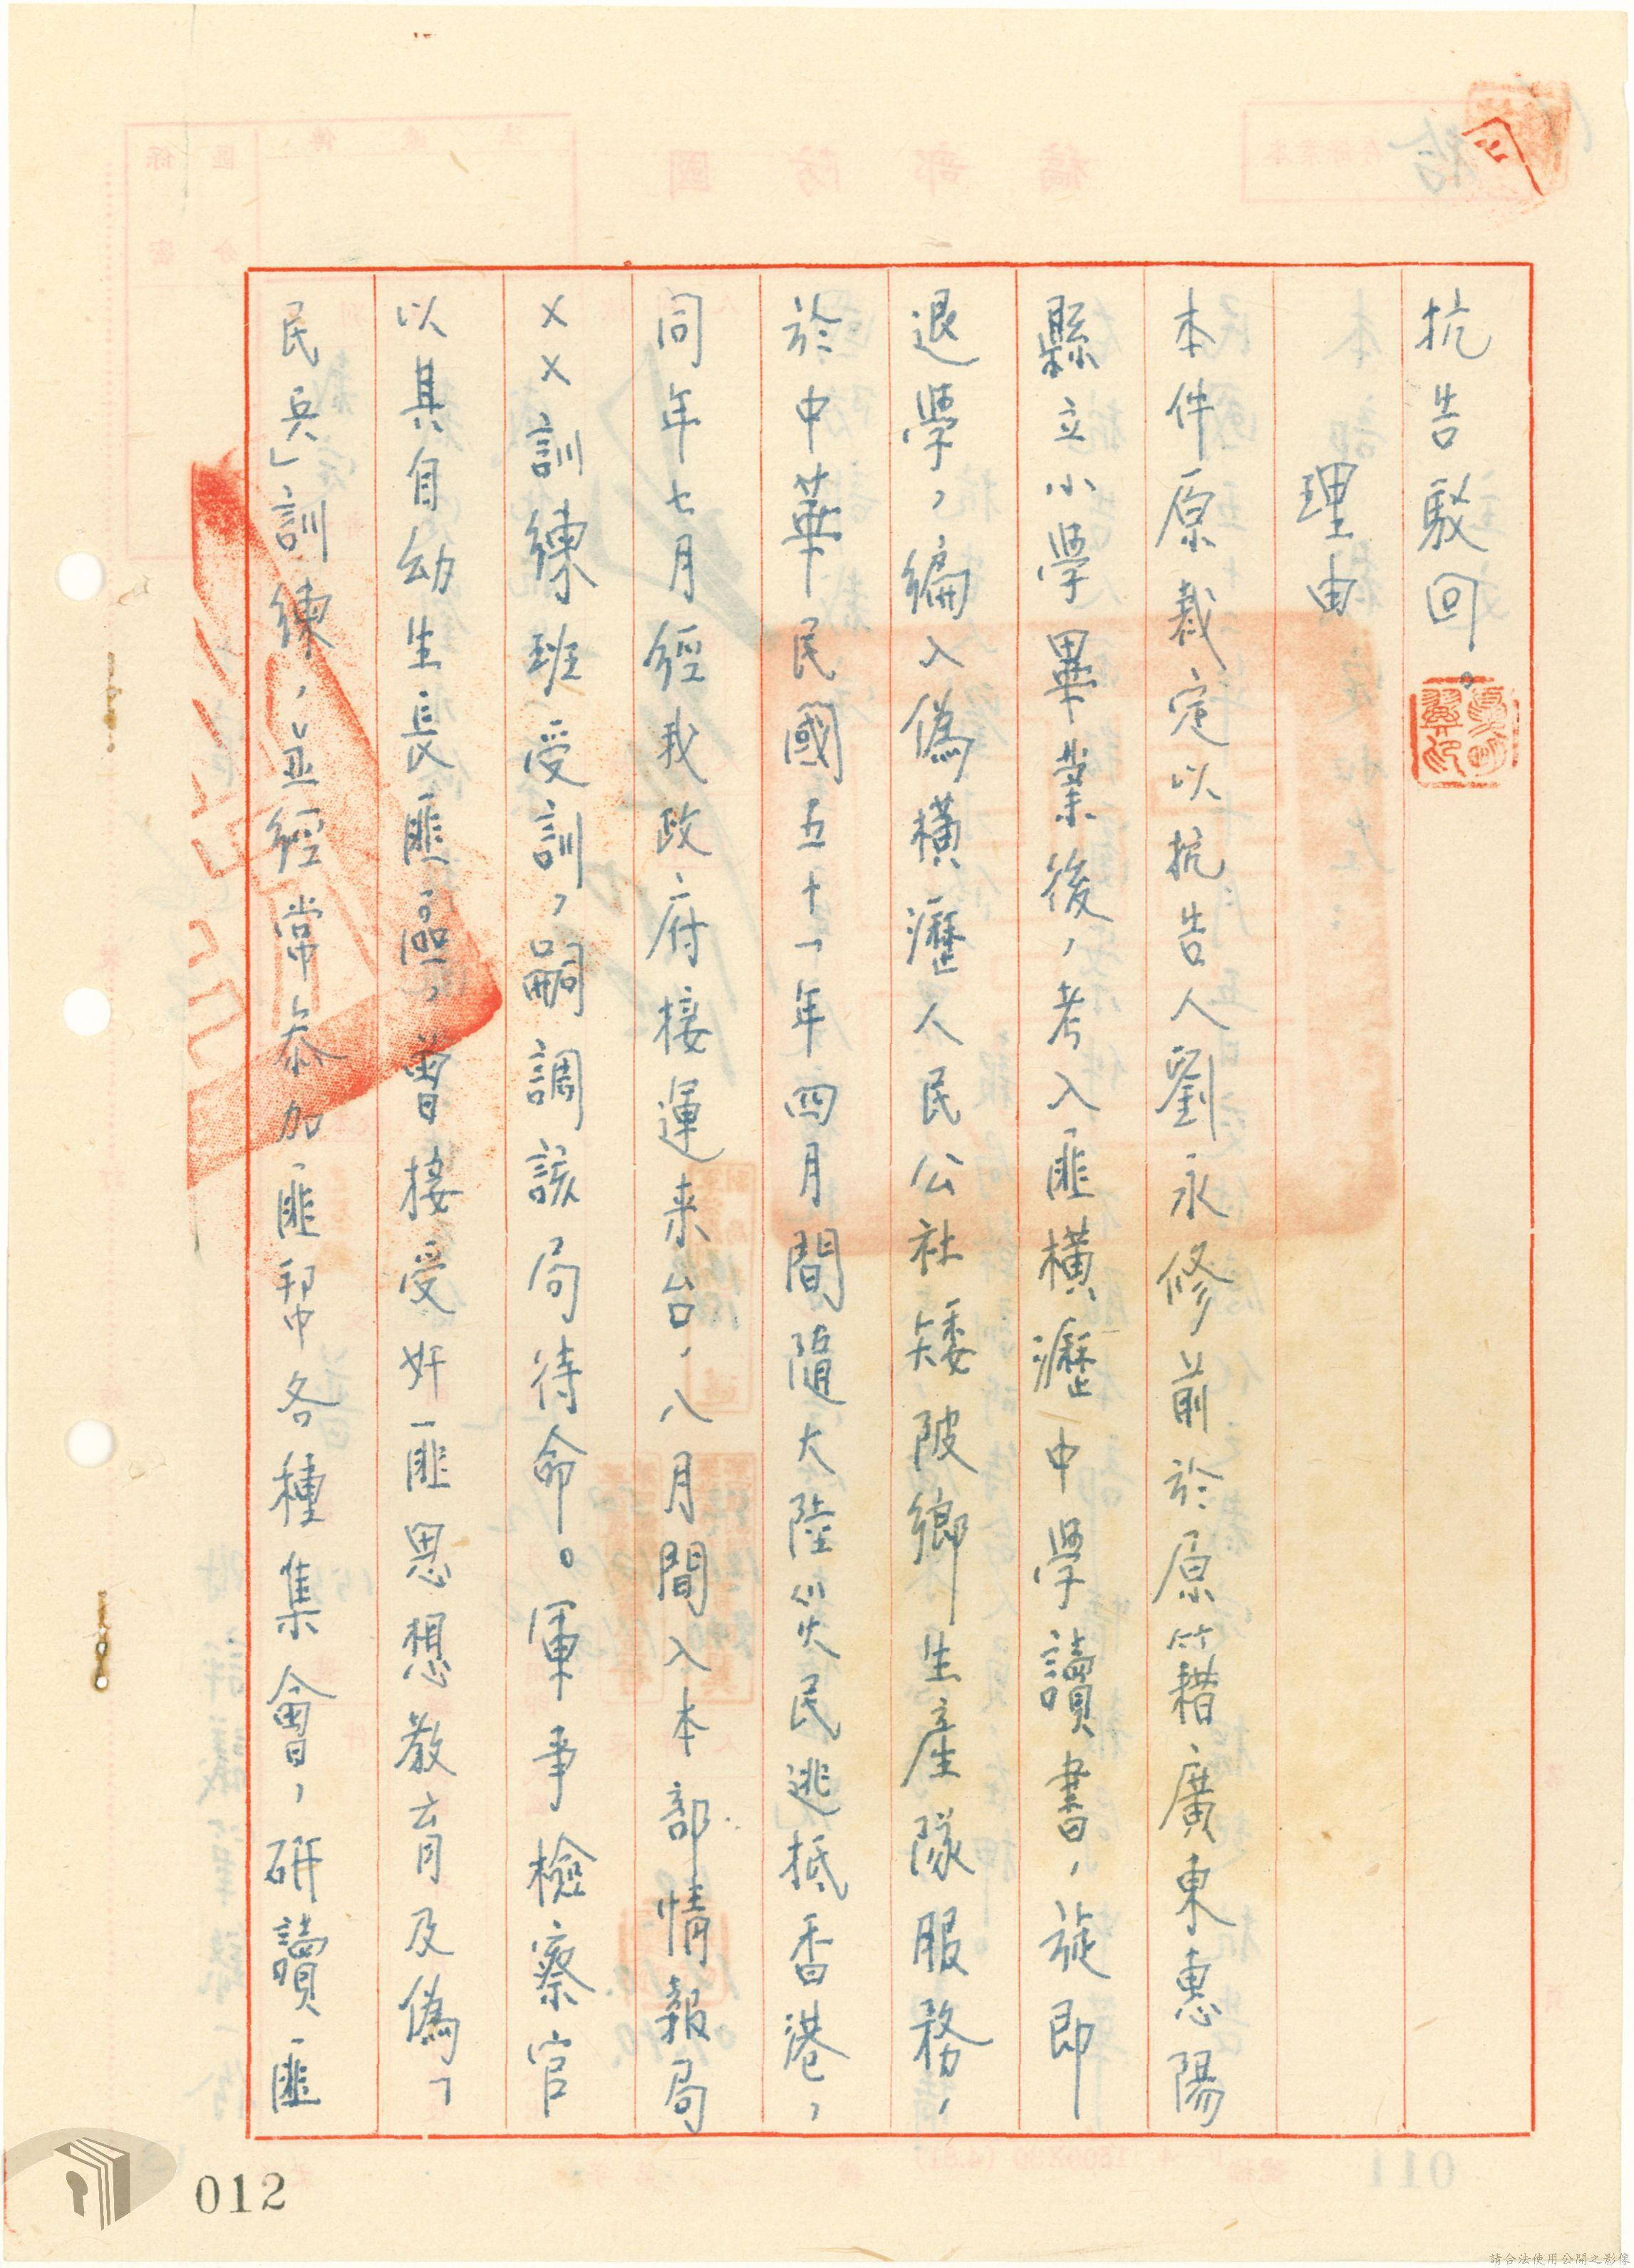 抗告駁回。
理由
本件原裁定以抗告人劉永修前於原籍廣東惠陽
縣立小學畢業後，考入匪橫瀝中學讀書，旋即
退學，編入偽橫瀝人民公社矮陂鄉生產隊服務，
於中華民國五十一年四月間隨大陸災民逃抵香港，
同年七月經我政府接運來台，八月間入本部情報局
××訓練班受訓，嗣調該局待命。軍事檢察官
以其自幼生長匪區，曾接受奸匪思想教育及偽「
民兵」訓練，並經常參加匪幫各種集會，研讀匪
012
請合法使用公開之影像